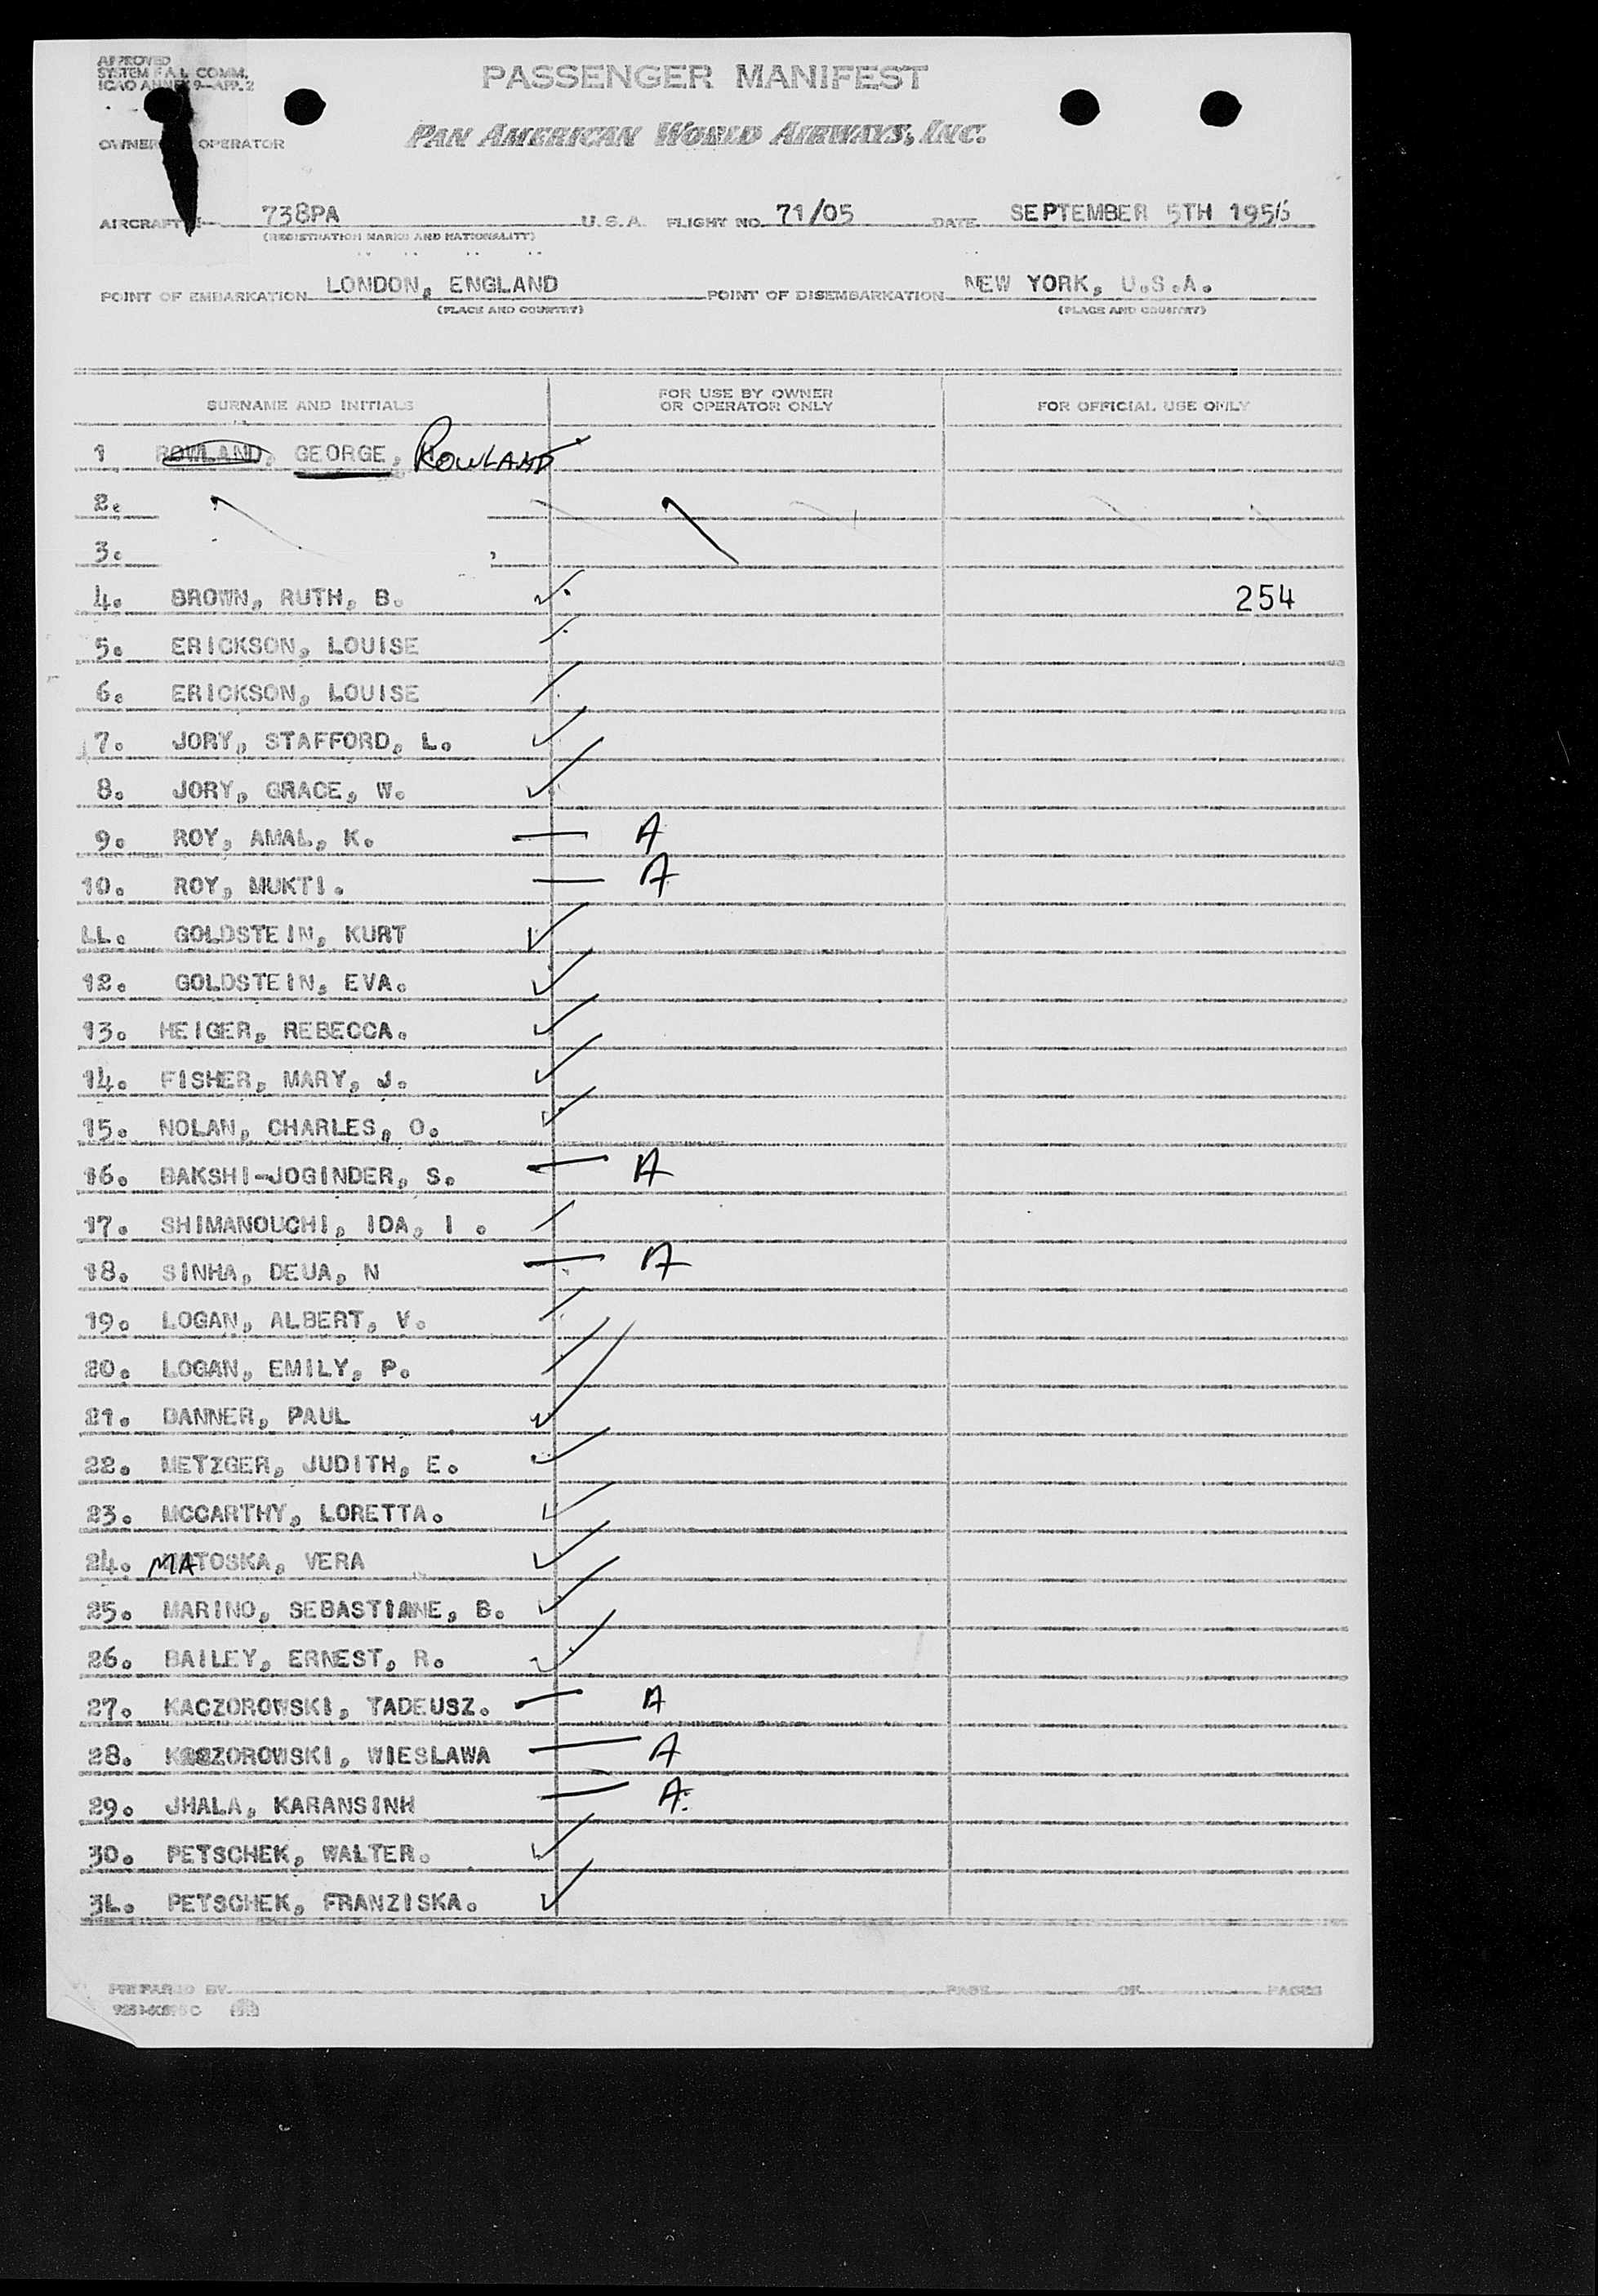 APPROVED
SYSTEM F.A.L. COMM.
ICAO ANNEX 9—APP. 2
PASSENGER MANIFEST
OWNER OPERATOR
PAN AMERICAN WORLD AIRWAYS, INC.
AIRCRAFT 738PA U.S.A. FLIGHT NO. 71/05 DATE SEPTEMBER 5TH 1956
(REGISTRATION MARKS AND NATIONALITY)
POINT OF EMBARKATION LONDON, ENGLAND POINT OF DISEMBARKATION NEW YORK, U.S.A.
(PLACE AND COUNTRY) (PLACE AND COUNTRY)
SURNAME AND INITIALS FOR USE BY OWNER OR OPERATOR ONLY FOR OFFICIAL USE ONLY
1 ROWLAND, GEORGE, ROWLAND
2.
3.
4. BROWN, RUTH, B. 254
5. ERICKSON, LOUISE
6. ERICKSON, LOUISE
7. JORY, STAFFORD, L.
8. JORY, GRACE, W.
9. ROY, AMAL, K. — A
10. ROY, MUKTI. — A
LL. GOLDSTEIN, KURT
12. GOLDSTEIN, EVA.
13. HEIGER, REBECCA.
14. FISHER, MARY, J.
15. NOLAN, CHARLES, O.
16. BAKSHI-JOGINDER, S. — A
17. SHIMANOUCHI, IDA, I .
18. SINHA, DEUA, N — A
19. LOGAN, ALBERT, V.
20. LOGAN, EMILY, P.
21. DANNER, PAUL
22. METZGER, JUDITH, E.
23. MCCARTHY, LORETTA.
24. MATOSKA, VERA
25. MARINO, SEBASTIANE, B.
26. BAILEY, ERNEST, R.
27. KACZOROWSKI, TADEUSZ. — A
28. KACZOROWSKI, WIESLAWA — A
29. JHALA, KARANSINH — A
30. PETSCHEK, WALTER.
3L. PETSCHEK, FRANZISKA.
PREPARED BY PAGE OF PAGES